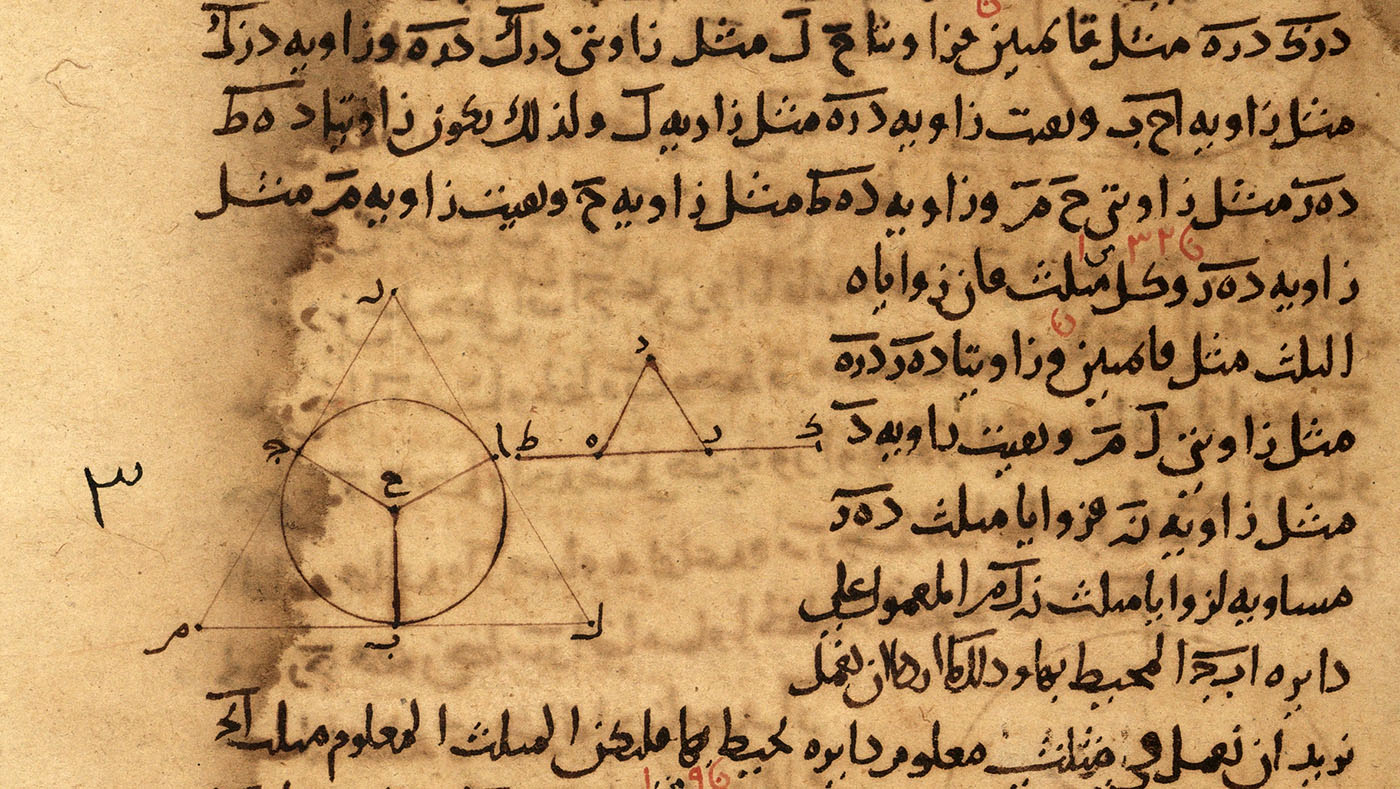 درك دره مثل قائمتين فزاويتا ح ل مثل زاويتي درك دره وزاويه درك
مثل زاويه اح ب وبقيت زاويه دره مثل زاويه ل ولذلك يكون زاويتا د ه ط
ده ر مثل زاويتي ح مر وزاويه ده ط مثل زاويه ح وبقيت زاويه مر مثل
ن ٣٢ س ا
زاويه ده ر وكل مثلث فان زواياه
ن
الثلث مثل قائمتين وزاويتا ده ر دره
مثل زاويتي ل مر وبقيت زاويه د
مثل زاويه ن فزوايا مثلث ده ر
مساويه لزوايا مثلث ن ل مر المعمول على
دايره اب ج المحيط بها وذلك ما اردنا ان نعمل
نريد ان نعمل في مثلث معلوم دايره يحيط بها فليكن المثلث المعلوم مثلث
ن
د
ه
ر
ك
ط
ا
ج
ح
ب
ل
مر
٣